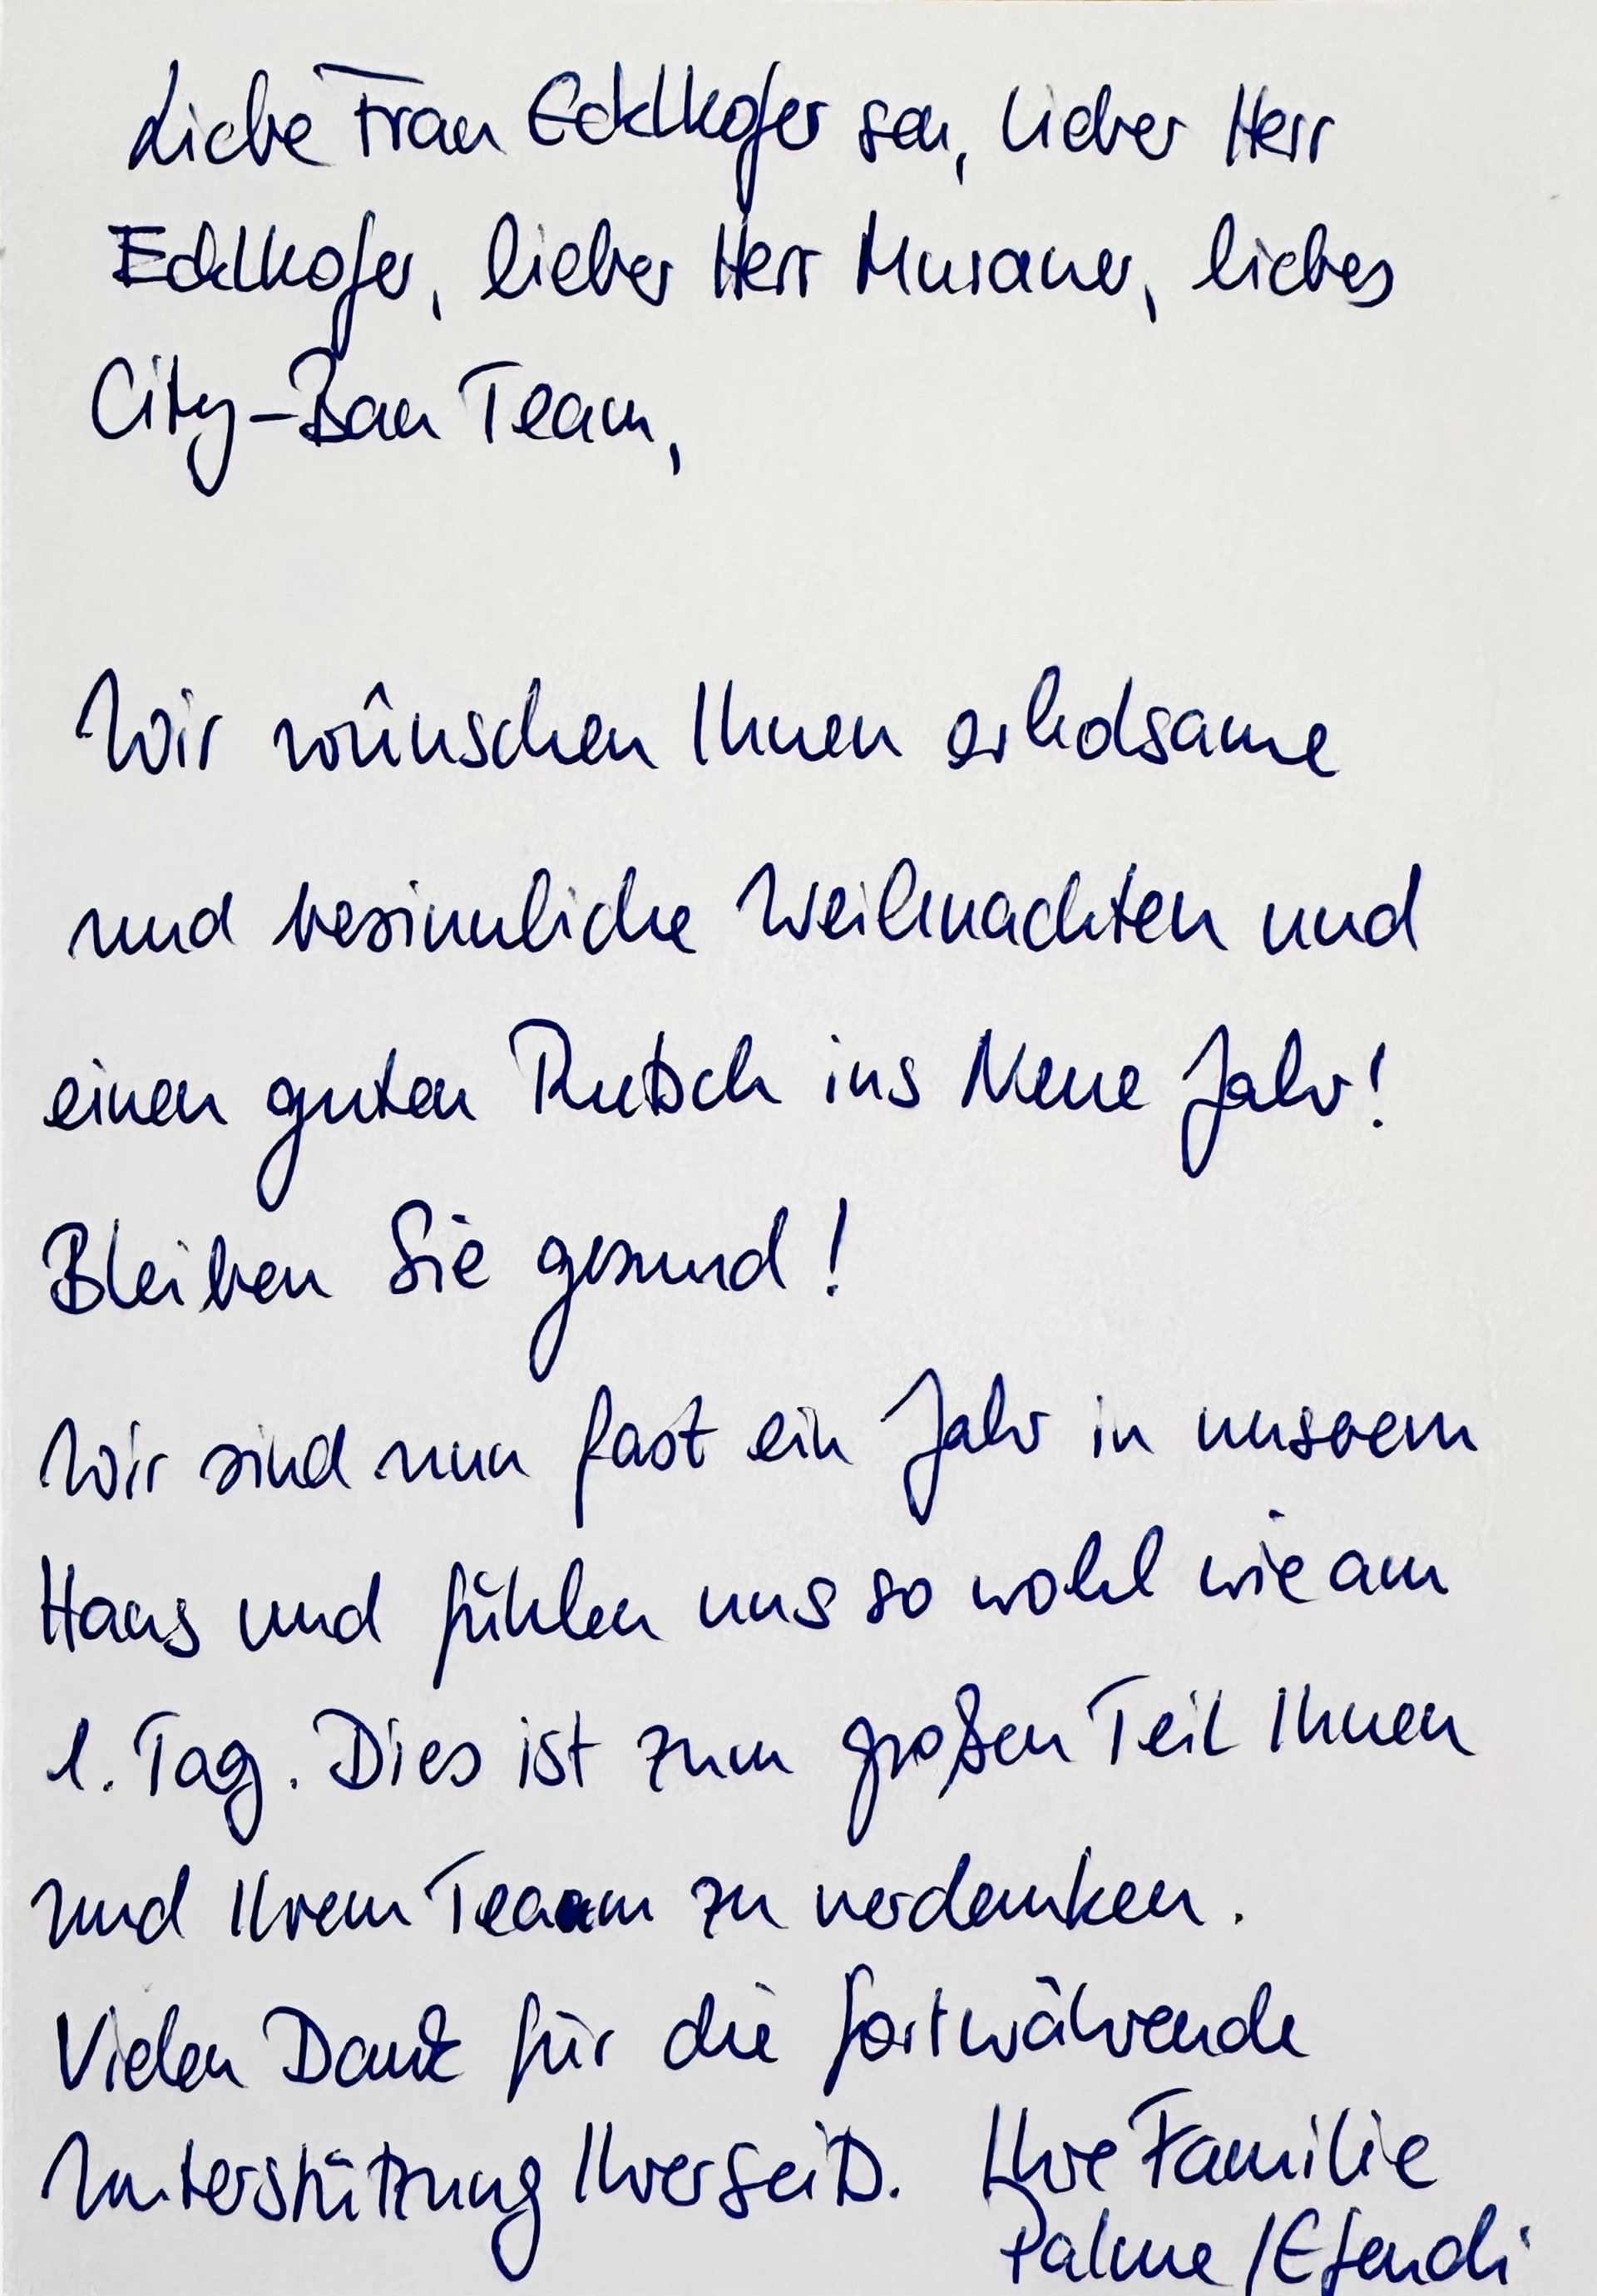 Liebe Frau Ecklkofer sen, lieber Herr
Ecklkofer, lieber Herr Murauer, liebes
City-Bau Team,
Wir wünschen Ihnen erholsame
und besinnliche Weihnachten und
einen guten Rutsch ins Neue Jahr!
Bleiben Sie gesund!
Wir sind nun fast ein Jahr in unserem
Haus und fühlen uns so wohl wie am
1. Tag. Dies ist zum großen Teil Ihnen
und Ihrem Team zu verdanken.
Vielen Dank für die fortwährende
Unterstützung Ihrerseits. Ihre Familie
Palme/Efendi